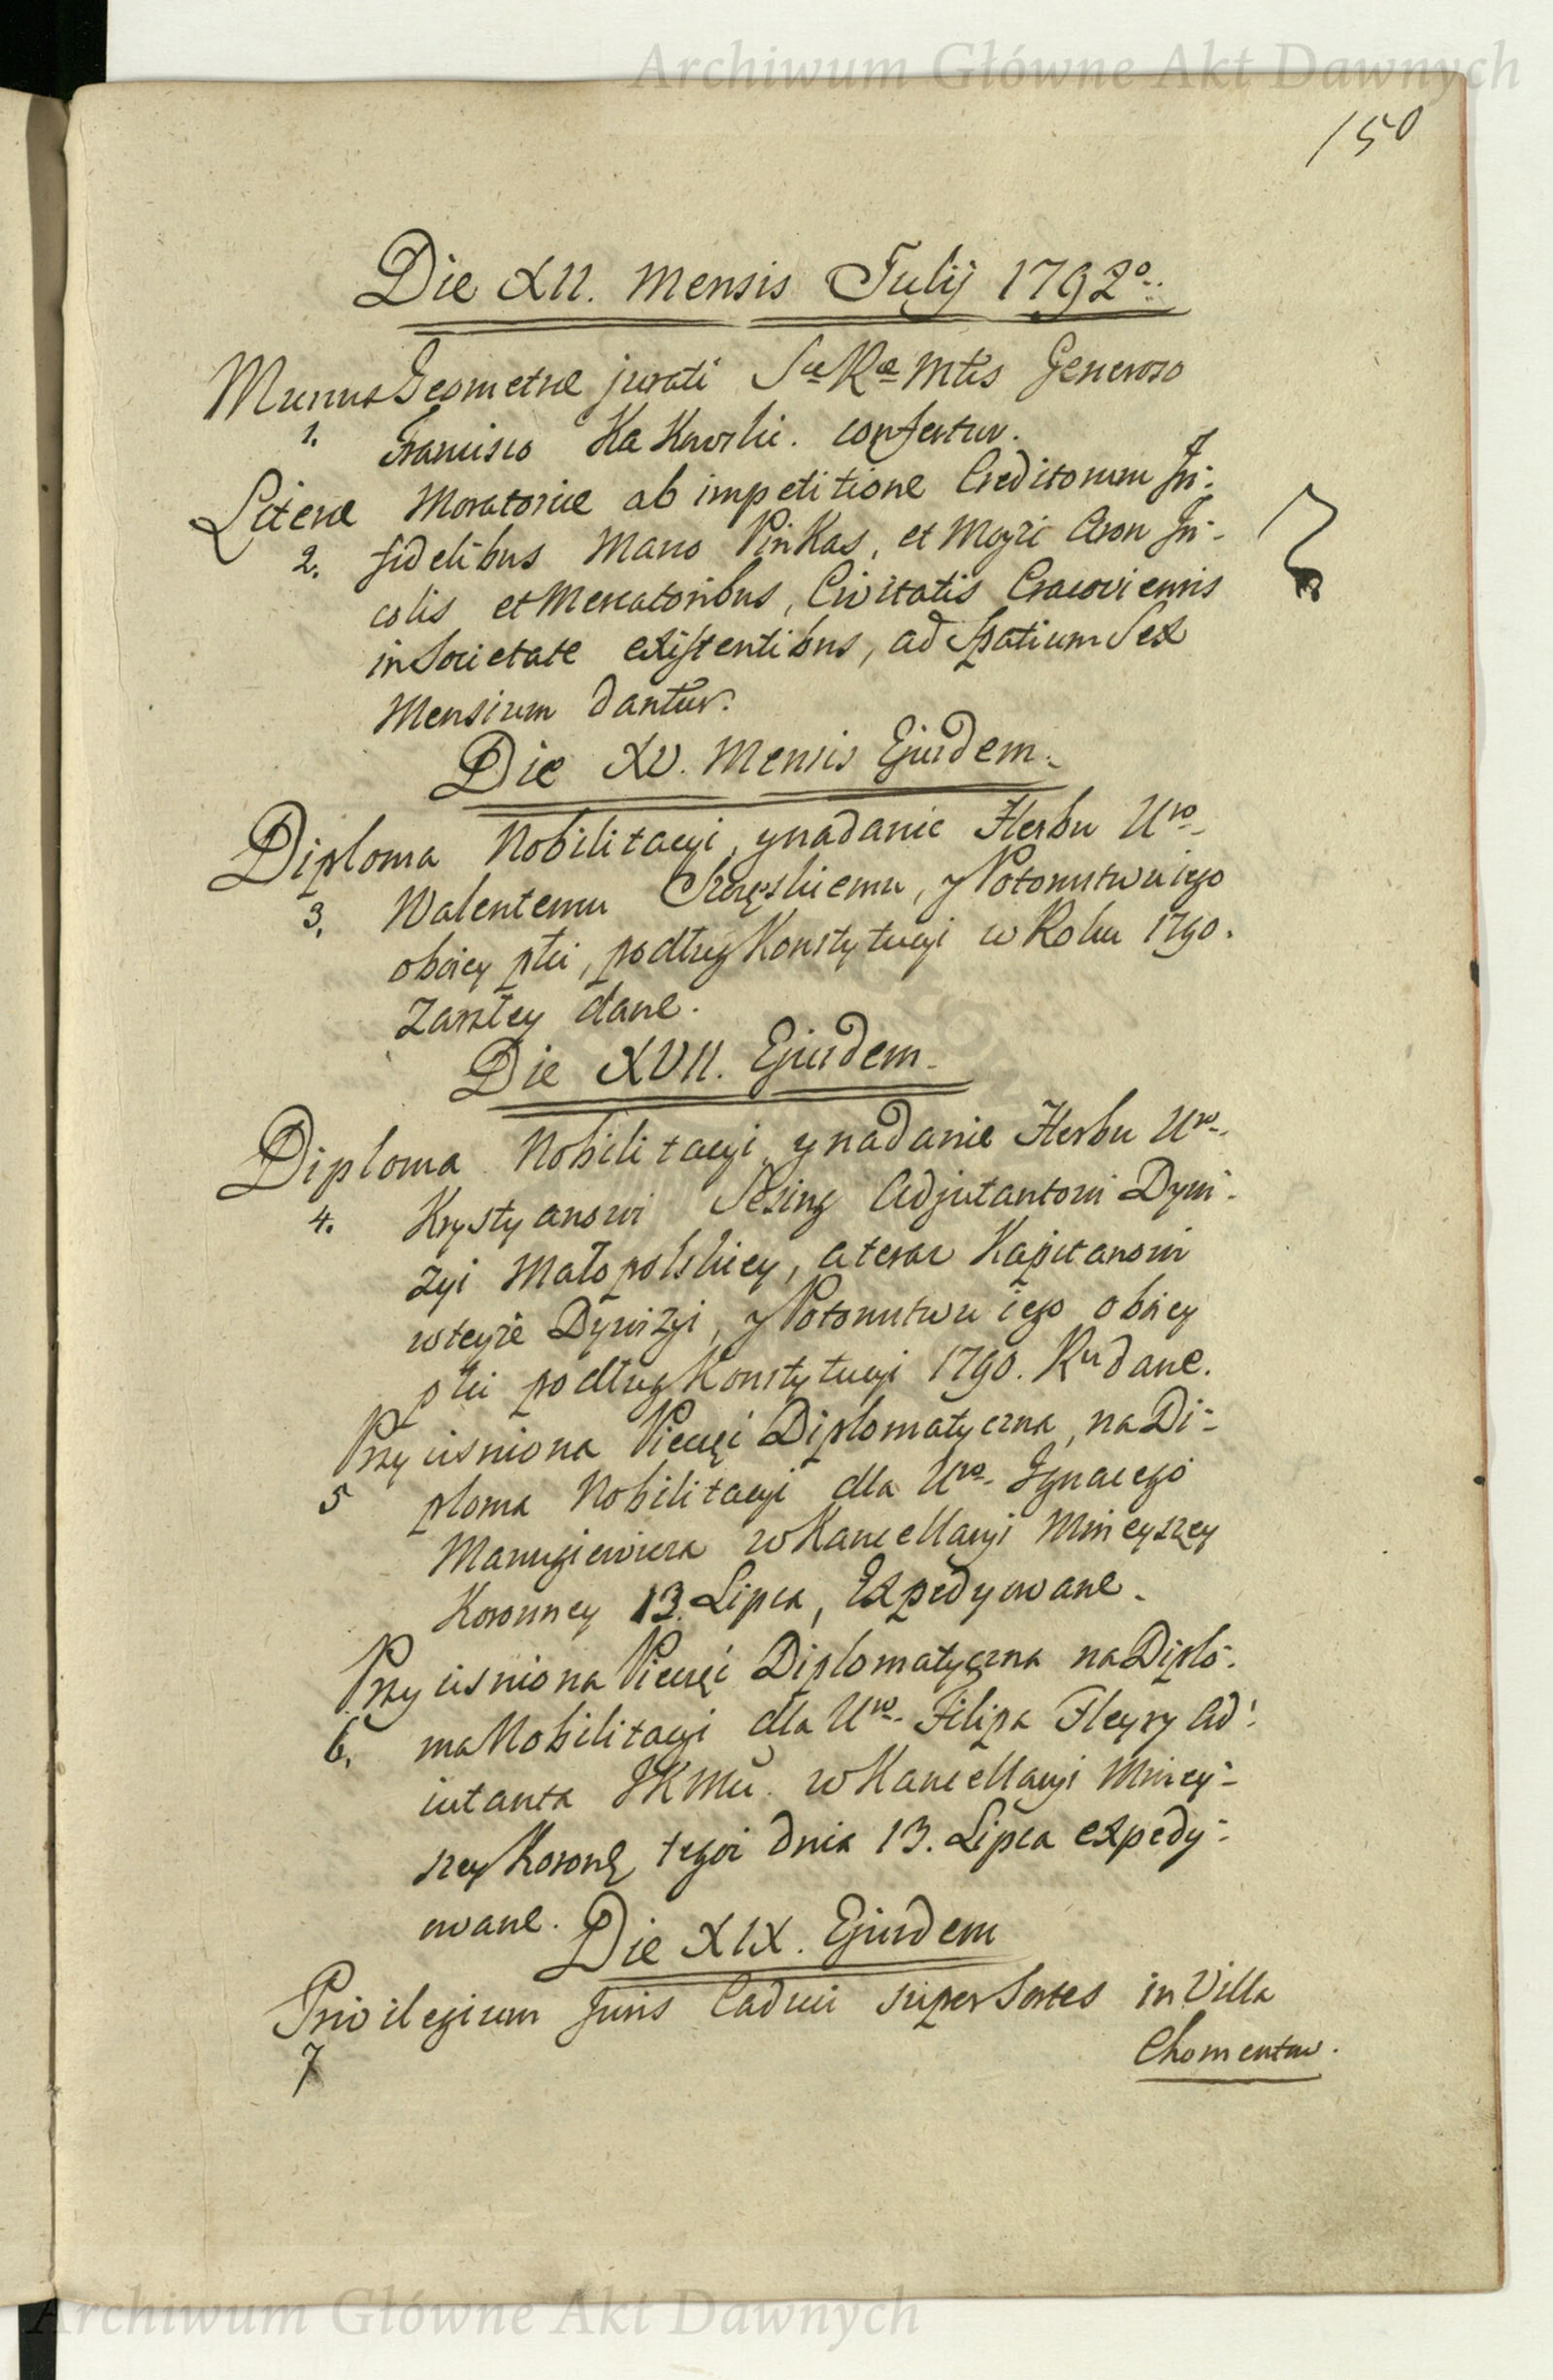 Archiwum Główne Akt Dawnych
150
Die XII. Mensis Julij 1792º
Munus Geometræ jurati Sæ Ræ Mtis Generoso
1. Francisco confertur.
Literæ Moratoriæ ab impetitione Creditorum In-
2. fidelibus Mano Pinkas, et Mojzi Aron In-
colis et Mercatoribus, Civitatis Cracoviensis
in Societate existentibus, ad Spatium Sex
Mensium dantur.
Die XV. Mensis Ejusdem.
Diploma Nobilitacyi, y nadanie Herbu Uro-
3. Walentemu, y Potomstwu iego
oboiey płci, podług Konstytucyi w Roku 1790.
zaszłey dane.
Die XVII. Ejusdem.
Diploma Nobilitacyi, y nadanie Herbu Uro-
4. Krystyanowi Sesing Adjutantowi Dywi-
zyi Małopolskiey, a teraz Kapitanowi
w teyże Dywizyi, y Potomstwu iego oboiey
płci podług Konstytucyi 1790. Ru dane.
Przyciśniona Pieczęć Diplomatyczna, na Di-
5 ploma Nobilitacyi dla Uro- Ignacego
w Kancellaryi Mnieyszey
Koronney 13. Lipca, Expedyowane.
Przyciśniona Pieczęć Diplomatyczna na Diplo-
6. ma Nobilitacyi dla Uro- Filipa Fleyry Ad-
iutanta JKMci. w Kancellaryi Mniey-
szey Koronę tegoż dnia 13. Lipca expedy-
owane.
Die XIX. Ejusdem
Privilegium Juris Caduci super Sortes in Villa
7
Chomentow.
Archiwum Główne Akt Dawnych